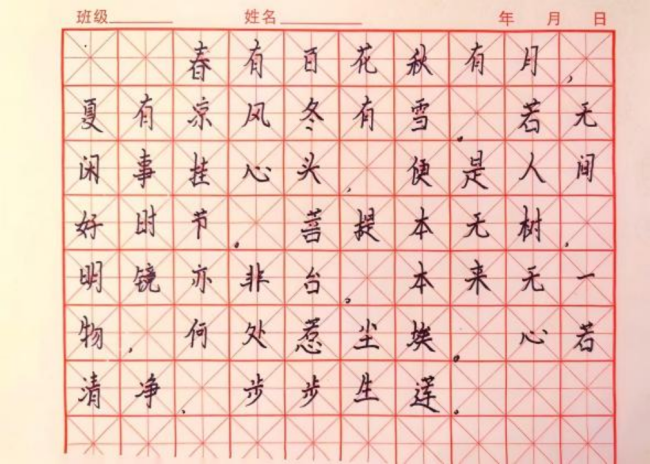 班级 姓名 年 月 日
春有百花秋有月,
夏有凉风冬有雪。若无
闲事挂心头,便是人间
好时节。菩提本无树,
明镜亦非台。本来无一
物,何处惹尘埃。心若
清净、步步生莲。